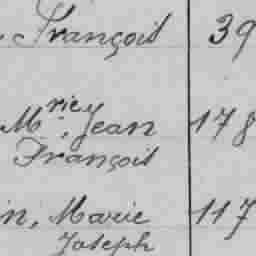 , François 39
M.rie, Jean 178
François
in, Marie 117
Joseph